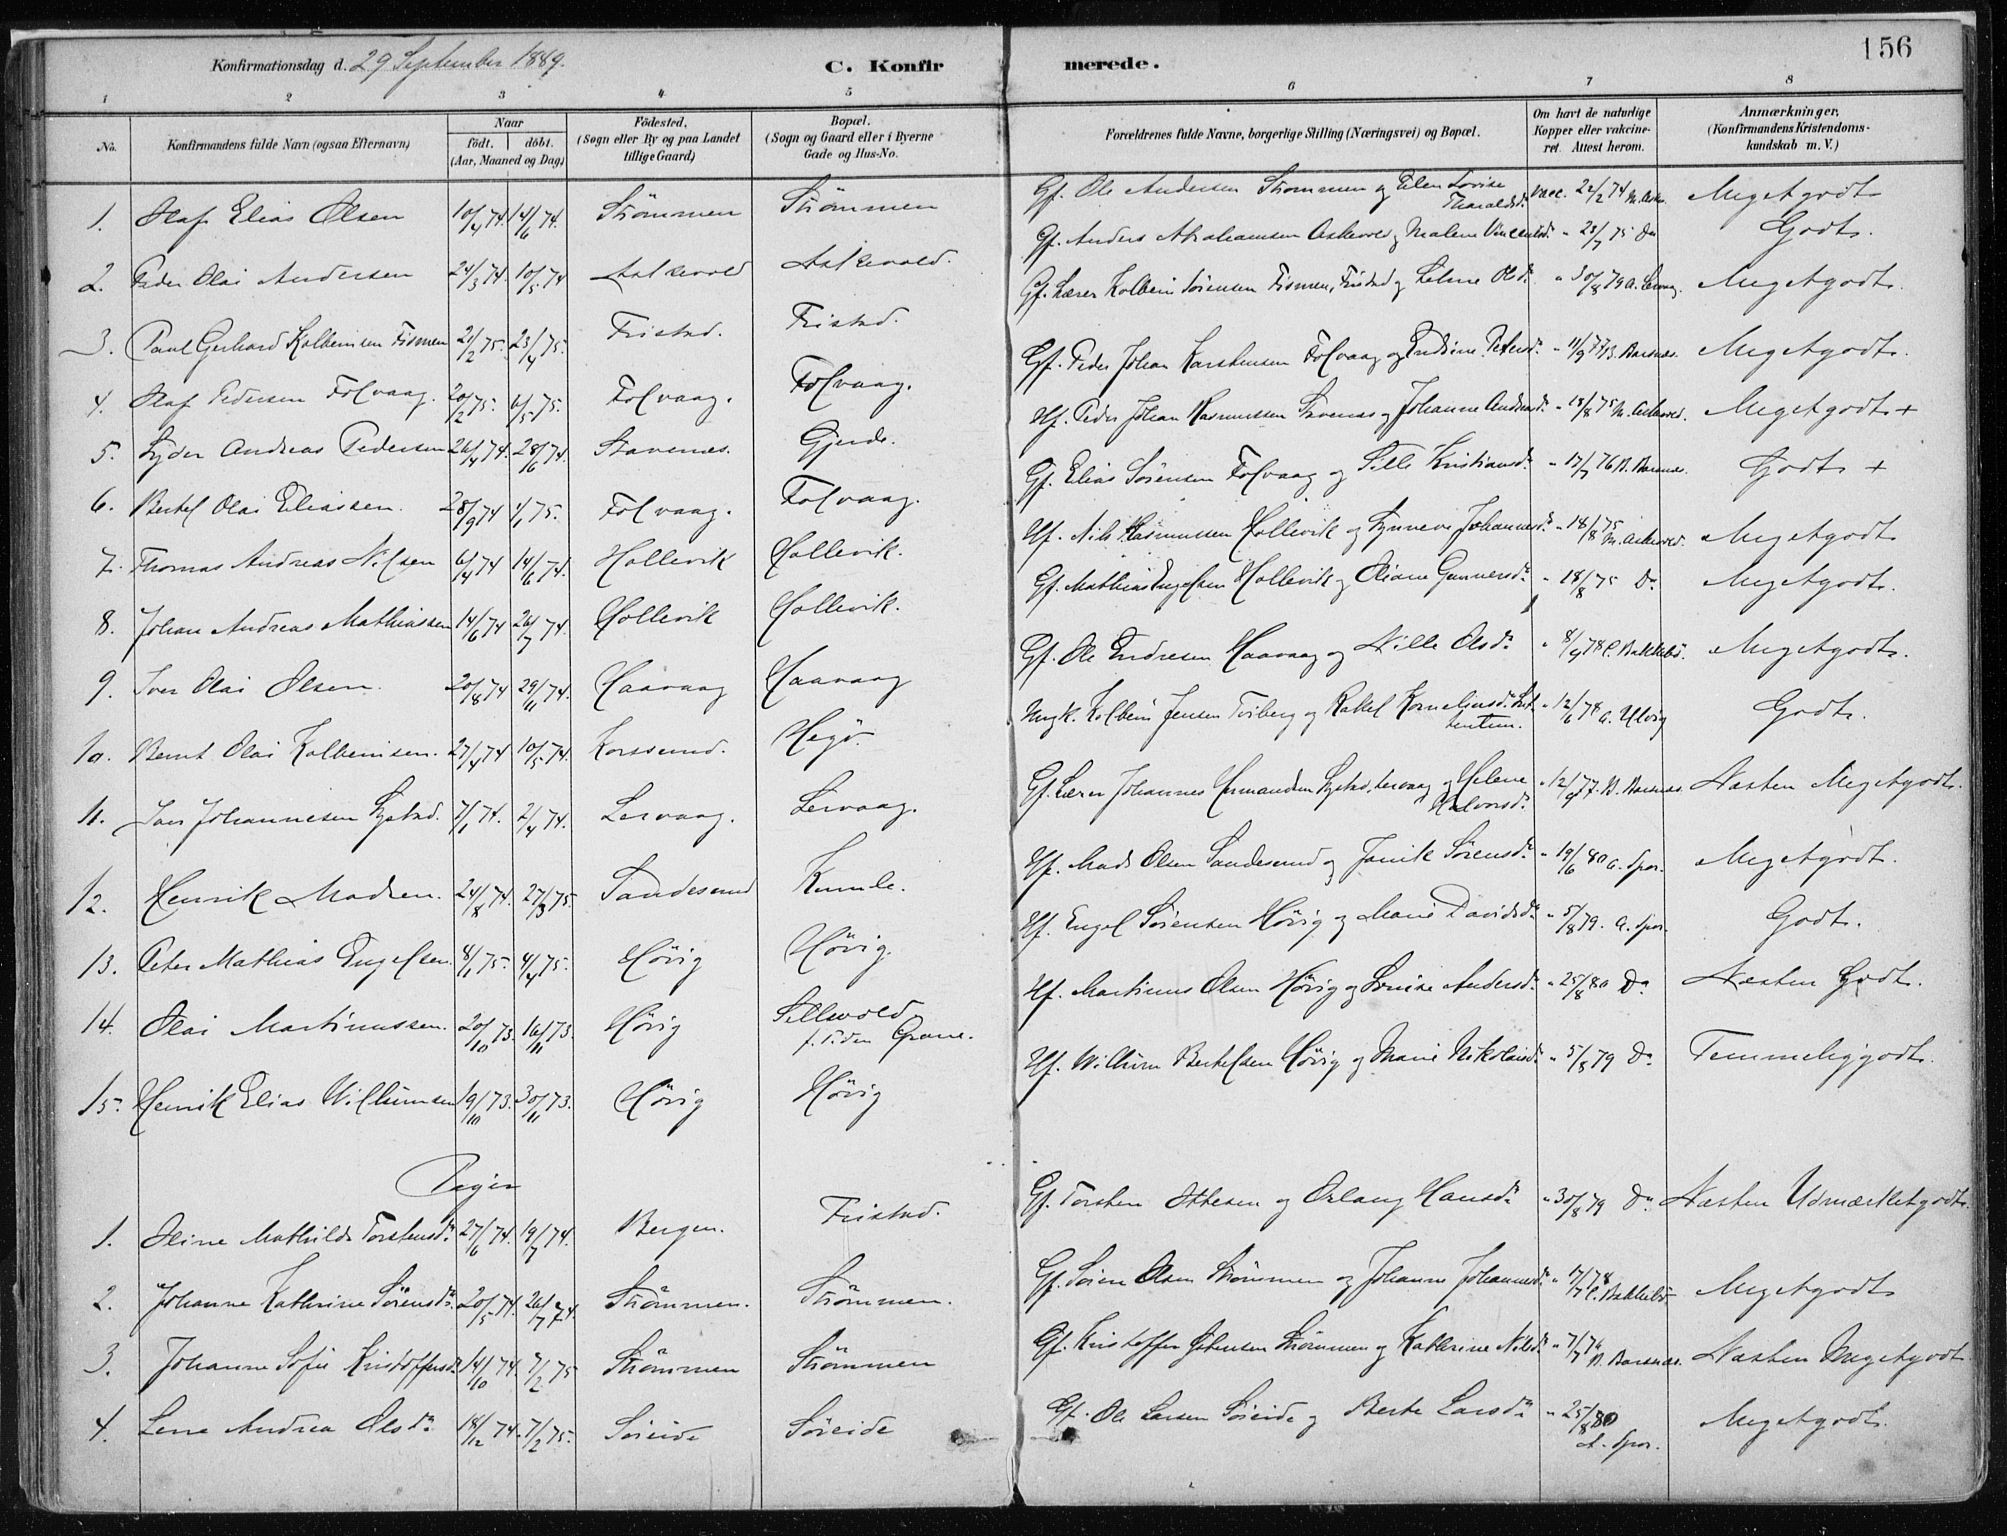 156
Konfirmationsdag d. 29 September 1889.
C. Konfirmerede.
1 2 3 4 5 6 7 8
No. Konfirmandens fulde Navn (ogsaa Efternavn) Naar födt. döbt. (Aar, Maaned og Dag) Födested. (Sogn eller By og paa Landet tillige Gaard) Bopæl. (Sogn og Gaard eller i Byerne Gade og Hus-No. Forældrenes fulde Navne, borgerlige Stilling (Næringsvei) og Bopæl. Om havt de naturlige Kopper eller vakcineret. Attest herom. Anmærkninger, (Konfirmandens Kristendomskundskab m. V.)
1. Olaf Elias Olsen 10/4 74. 14/6 74. Strömmen Strömmen Gf. Ole Andersen Strömmen og Elen Lovise Tharaldsd. vacc. 22/2 74 M. Ask. Megetgodt
2. Peder Olai Andersen 24/3 74. 10/5 74 Askevold Askevold. Gf. Anders Abrahamsen Askevold og Malene Vincentsd. " 23/7 75 Do Godt.
3. Paul Gerhard Kolbeinsen Fismen 21/2 75. 23/4 75. Fristad. Fristad. Gf. Lærer Kolbein Sörensen Fismen, Fristad og Olsdr " 30/8 79 Megetgodt.
4. Olaf Pedersen Folvaag. 20/2 75. 6/5 75. Folvaag. Folvaag. Gf. Peder Johan Karstensen Folvaag og Endrine Petersdr " 11/9 77 B. Barsnes. Megetgodt.
5. Syder Andreas Pedersen 26/4 74. 28/6 74. Stavenes. Gjerde. Uf. Peder Johan Rasmussen Stavenes og Johanne Andreasdr " 18/8 75 M. Askevold. Megetgodt +
6. Bertel Olai Eliassen. 28/9 74 1/1 75. Folvaag. Folvaag. Gf. Elias Sörensen Folvaag og Sille Kristiansdr " 17/7 76 B. Barsnes. Godt +
7. Thomas Andreas Nilsen 6/4 74 14/6 74. Hollevik Hollevik. Uf. Nils Rasmussen Hollevik og Synneve Johannesdr " 18/8 75 M. Askevold. Megetgodt
8. Johan Andreas Mathiassen 14/6 74 26/7 74. Hollevik Hollevik. Gf. Mathias Engelsen Hollevik og Oliane Gunnersdr " 18/8 75 Do Megetgodt.
9. Iver Olai Olsen. 20/8 74 29/11 74. Haavaag Haavaag Gf. Ole Endresen Haavaag og Nille Olsdr " 8/9 78 C. Bakkebö. Megetgodt.
10. Bernt Olai Kolbeinsen. 27/4 74 10/5 74. Korssund. Hegö. Ungk. Kolbein Jensen Tviberg og Rakel Korneliusdr " 12/6 78 A. Ulvig Godt.
11. Johannesen Systad. 7/1 74. 2/4 74. Lervaag. Lervaag. Gf. Lærer Johannes Hermandsen Systad, Lervaag og Helene Halvorsdr " 12/9 77. B. Barsnes Næsten Megetgodt.
12. Henrik Madsen. 24/8 74. 27/3 75. Sandesund Kumle. Uf. Mads Olsen Sandesund og Janik Sörensdr " 19/6 80 A. Spor. Megetgodt.
13. Peter Mathias Engelsen. 8/1 75. 4/4 75. Hövig Hövig. Uf. Engel Sörensen Hövig og Marie Davidsdr " 5/8 79. A. Spor. Godt.
14. Olai Martinussen. 20/10 73. 16/11 73 Hövig Sellevold f. Tiden Grane. Uf. Martinus Olsen Hövig og Lovise Andersdr " 25/8 80 Do Næsten Godt.
15. Henrik Elias Willumsen 19/10 73. 30/11 73. Hövig Hövig Uf. Willum Bertelsen Hövig og Marie Nikolaisdr " 5/8 79 Do Temmeliggodt.
Piger
1. Oline Mathilde Torstensdr 27/6 74. 19/7 74. Bergen. Fristad. Gf. Torsten Ottesen og Orlaug Hansdr " 30/8 79 Do Næsten Udmærketgodt.
2. Johanne Kathrine Sörensdr 20/5 74. 26/7 74. Strömmen. Strömmen. Gf. Sören Olsen Strömmen og Johanne Johannesdr " 17/7 78 C. Bakkebö. Megetgodt
3. Johanne Sofie Kristoffersdr 14/10 74. 7/2 75 Strömmen Strömmen Gf. Kristoffer Strömmen og Kathrine Nilsdr " 7/7 76 B. Barsnes. Næsten Megetgodt
4. Lene Andrea Olsdr 18/12 74. 7/2 75. Söreide Söreide Gf. Ole Larsen Söreide og Berte Larsdr " 25/8 80 A. Spor. Megetgodt.